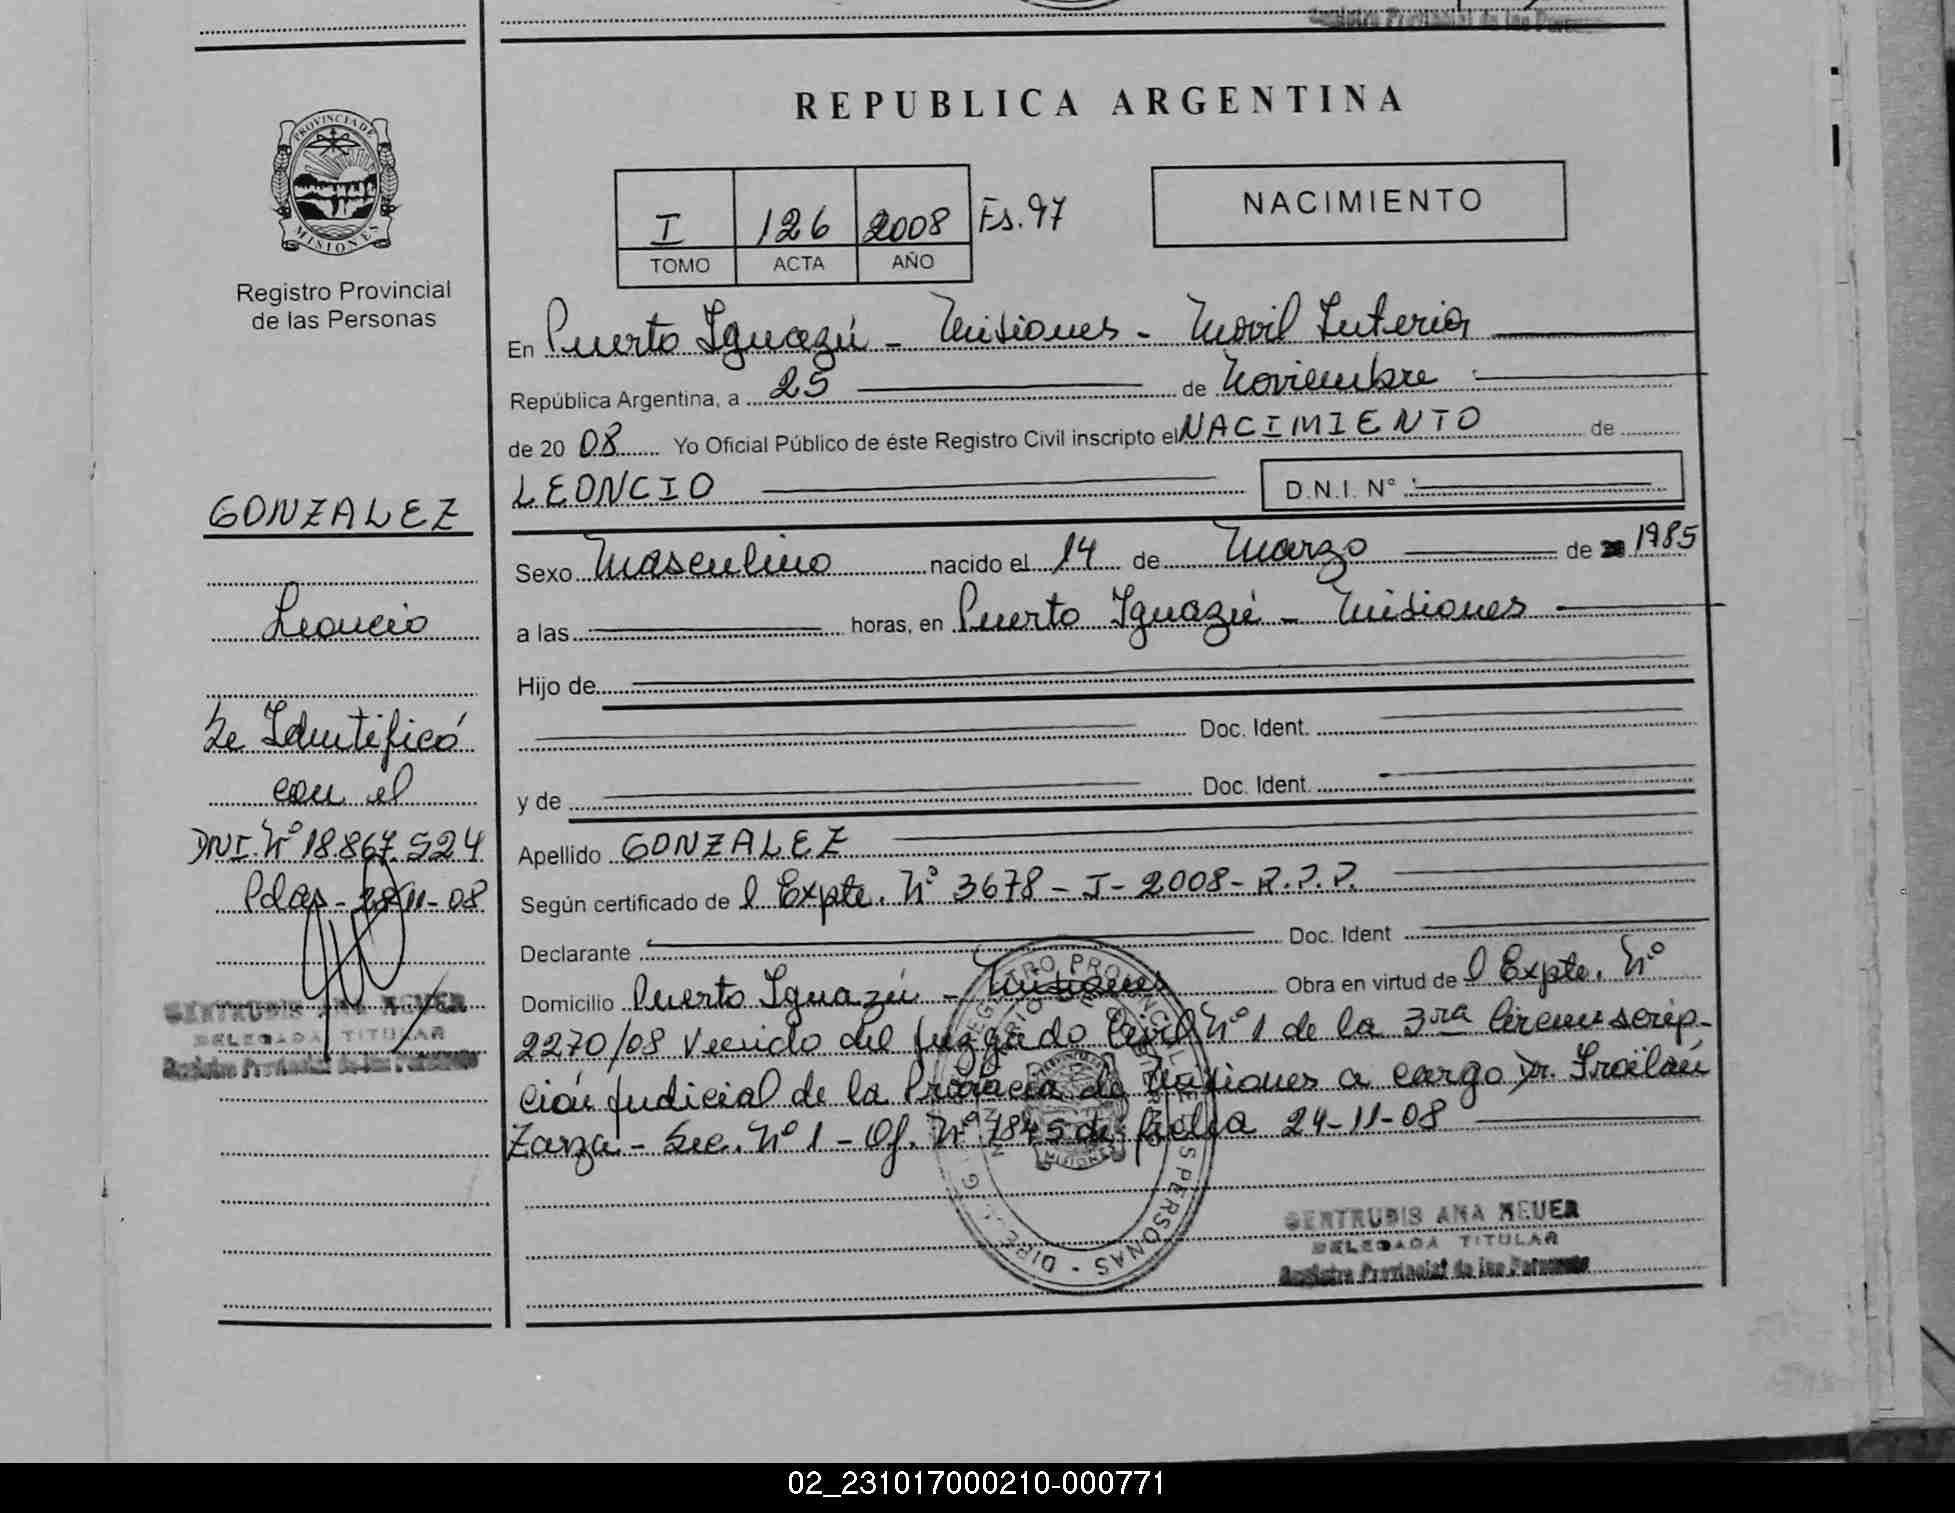 REPUBLICA ARGENTINA
PROVINCIA DE
MISIONES
Registro Provincial
de las Personas
I 126 2008 Fs. 97
TOMO ACTA AÑO
NACIMIENTO
En Puerto Iguazú - Misiones - Movil Interior
República Argentina, a 25 de Noviembre
de 20 08 Yo Oficial Público de éste Registro Civil inscripto el NACIMIENTO de
LEONCIO D.N.I. N°
GONZALEZ
Sexo Masculino nacido el 14 de Marzo de 1985
Leoncio
a las horas, en Puerto Iguazú - Misiones
Hijo de
Se Identificó
con el
DNI. N° 18.867.524
Pdas - 28-11-08
Doc. Ident.
y de Doc. Ident.
Apellido GONZALEZ
Según certificado de l Expte. N° 3678 - I - 2008 - R.P.P.
Declarante Doc. Ident
Domicilio Puerto Iguazú - Misiones Obra en virtud de l Expte. N°
2270/08 Venido del Juzgado Civil N° 1 de la 3ra Circunscrip-
ción Judicial de la Provincia de Misiones a cargo Dr. Froilán
Zarza - Sec. N° 1 - Of. N° 1845 de fecha 24-11-08
GERTRUDIS ANA NEUER
DELEGADA TITULAR
Registro Provincial de las Personas
GERTRUDIS ANA NEUER
DELEGADA TITULAR
Registro Provincial de las Personas
02_231017000210-000771